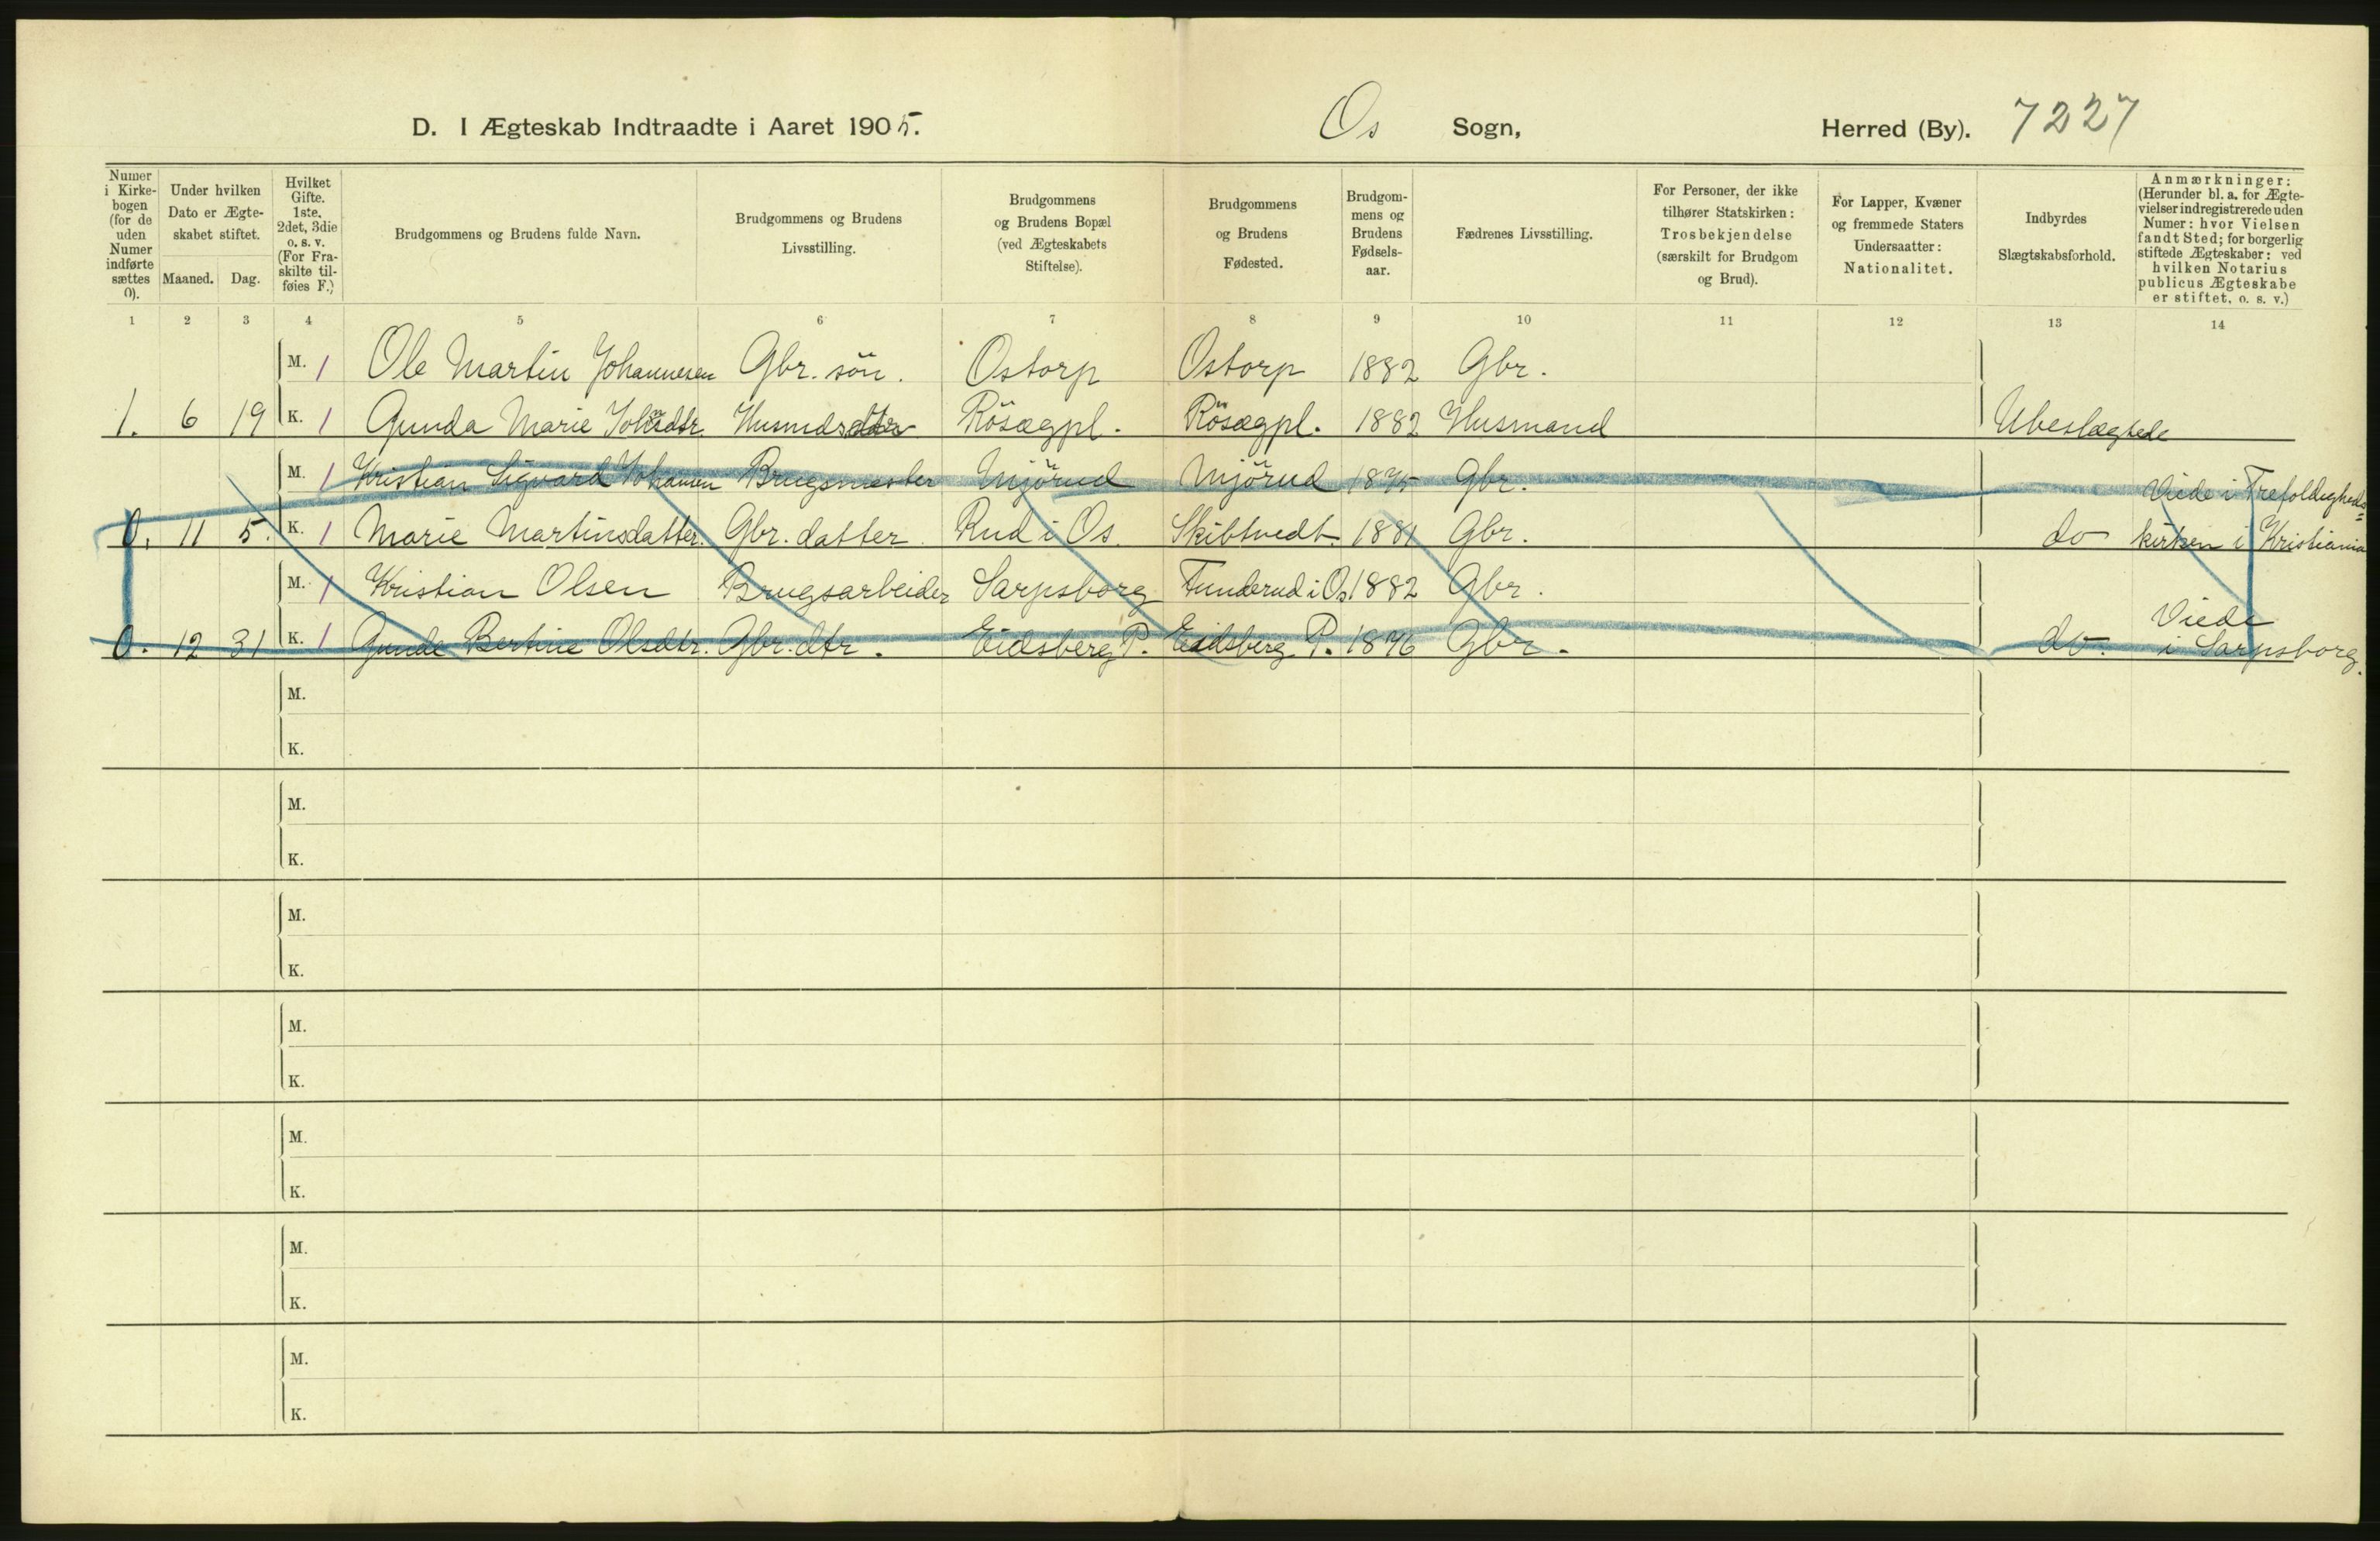 D. I Ægteskab Indtraadte i Aaret 1905. Os Sogn, Herred (By). 7227
Numer i Kirkebogen (for de uden Numer indførte sættes 0).
Under hvilken Dato er Ægteskabet stiftet.
Maaned. Dag.
Hvilket Gifte. 1ste, 2det, 3die o. s. v. (For Fraskilte tilføies F.)
Brudgommens og Brudens fulde Navn.
Brudgommens og Brudens Livsstilling.
Brudgommens og Brudens Bopæl (ved Ægteskabets Stiftelse).
Brudgommens og Brudens Fødested.
Brudgommens og Brudens Fødselsaar.
Fædrenes Livsstilling.
For Personer, der ikke tilhører Statskirken: Trosbekjendelse (særskilt for Brudgom og Brud).
For Lapper, Kvæner og fremmede Staters Undersaatter: Nationalitet.
Indbyrdes Slægtskabsforhold.
Anmærkninger: (Herunder bl. a. for Ægtevielser indregistrerede uden Numer: hvor Vielsen fandt Sted; for borgerlig stiftede Ægteskaber: ved hvilken Notarius publicus Ægteskabe er stiftet, o. s. v.)
1 2 3 4 5 6 7 8 9 10 11 12 13 14
M. 1 Ole Martin Johannesen Gbr. sön. Ostorp Ostorp 1882 Gbr.
1. 6 19 K. 1 Gunda Marie Husmdsdtr Rösægpl. Rösægpl. 1882 Husmand Ubeslægtede
M. 1 Kristian Sigvard Johansen Brugsmester Mjörud Mjörud 1875 Gbr. Viede i Trefoldigheds=
0. 11 5. K. 1 Marie Martinsdatter. Gbr. datter Rud i Os. Skibtvedt. 1881 Gbr. do kirken i Kristiania
M. 1 Kristian Olsen Brugsarbeider Sarpsborg Funderud i Os 1882 Gbr. Viede
0. 12 31 K. 1 Gunda Bertine Olsdtr. Gbr. dtr. Eidsberg P. Eidsberg P. 1876 Gbr. do. i Sarpsborg.
M.
K.
M.
K.
M.
K.
M.
K.
M.
K.
M.
K.
M.
K.